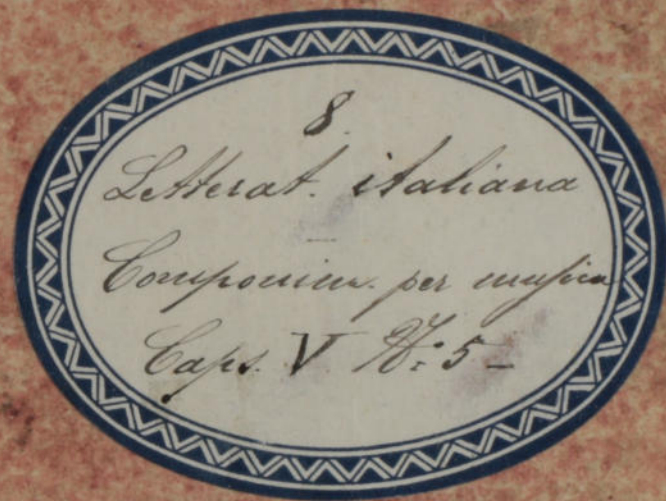 8.
Letterat. italiana
Componim. per musica
Caps. V. N: 5-